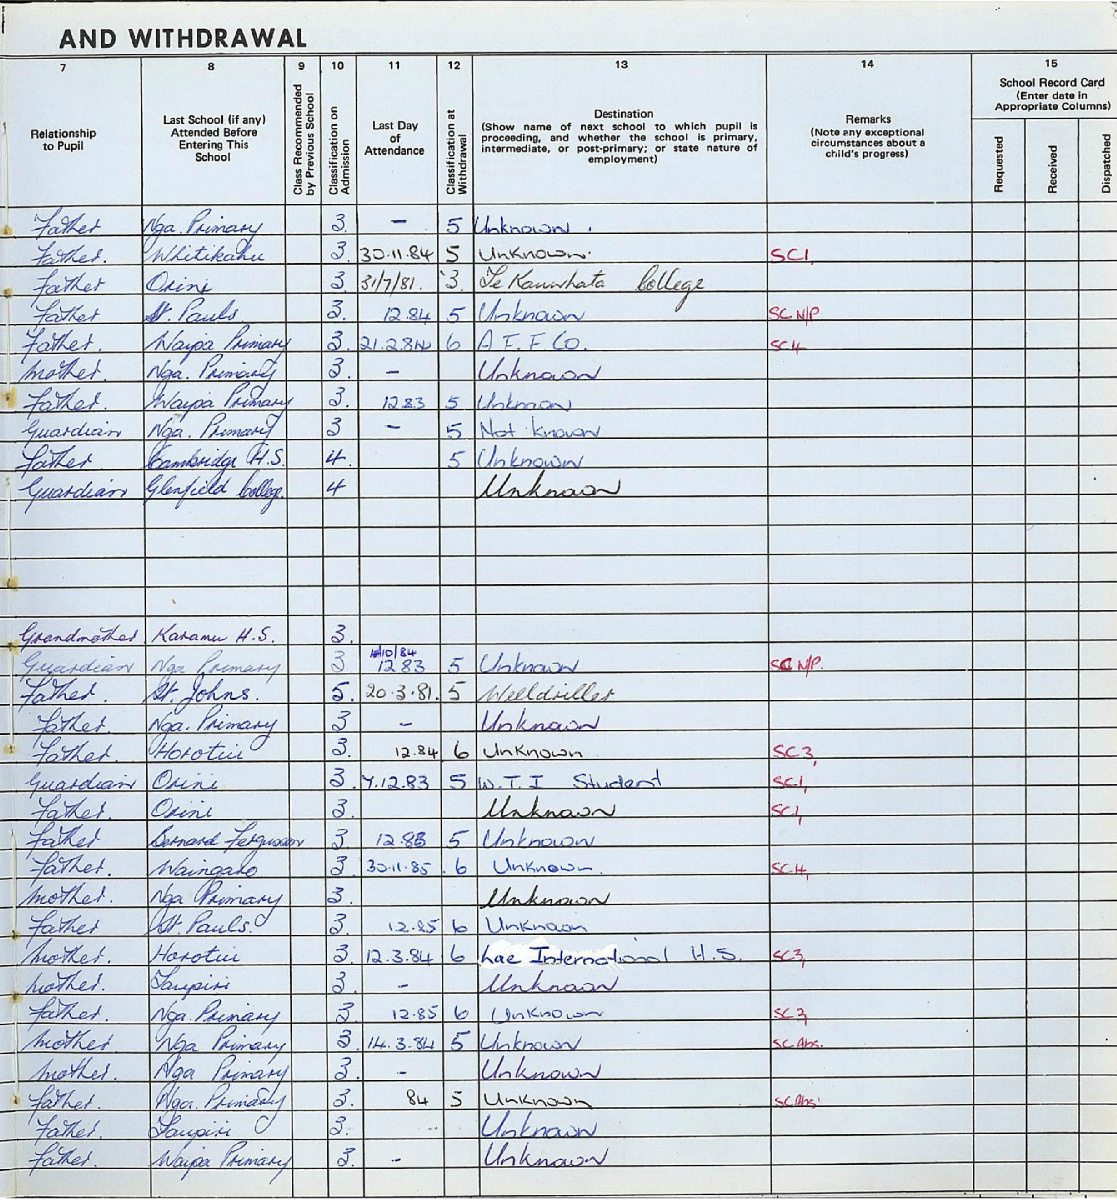 AND WITHDRAWAL
7 8 9 10 11 12 13 14 15
Relationship to Pupil
Last School (if any) Attended Before Entering This School
Class Recommended by Previous School
Classification on Admission
Last Day of Attendance
Classification at Withdrawal
Destination
(Show name of next school to which pupil is proceeding, and whether the school is primary, intermediate, or post-primary; or state nature of employment)
Remarks
(Note any exceptional circumstances about a child's progress)
School Record Card
(Enter date in Appropriate Columns)
Requested
Received
Dispatched
Father Nga. Primary 3. – 5 Unknown.
Father. Whitikahu 3. 30.11.84 5 Unknown. SC1,
Father Orini 3. 31/7/81. 3. Te Kauwhata College
Father St. Pauls 3. 12.84 5 Unknown SC N/P
Father. Waipa Primary 3. 21.2.84 6 A F. F Co. SC4
Mother. Nga. Primary 3. – Unknown
Father. Waipa Primary 3. 12.83 5 Unknown
Guardian Nga. Primary 3 – 5 Not known
Father Cambridge H.S. 4. 5 Unknown
Guardian Glenfield College 4 Unknown
Grandmother Karamu H.S. 3.
Guardian Nga Primary 3 /10/84 12.83 5 Unknown SC N/P.
Father. St. Johns. 5. 20.3.81. 5 Welldriller
Father. Nga. Primary 3 – Unknown
Father. Horotiu 3. 12.84 6 Unknown SC3,
Guardian Orini 3. 7.12.83 5 W.T.I Student SC1,
Father. Orini 3. Unknown SC1,
Father Bernard Fergusson 3. 12.83 5 Unknown
Father. Waingaro 3. 30.11.85. 6 Unknown. SC4,
Mother. Nga Primary 3. Unknown
Father St. Pauls. 3. 12.85 6 Unknown
Mother. Horotiu 3. 12.3.84 6 Lae International H.S. SC3,
Mother. Taupiri 3. – Unknown
Father. Nga. Primary 3 12.85 6 Unknown SC3,
Mother Nga Primary 3. 14.3.84 5 Unknown SC Abs.
Mother. Nga Primary 3. – Unknown
Father. Nga. Primary 3. 84 5 Unknown SC Abs.
Father. Taupiri 3. Unknown
Father. Waipa Primary 3. – Unknown